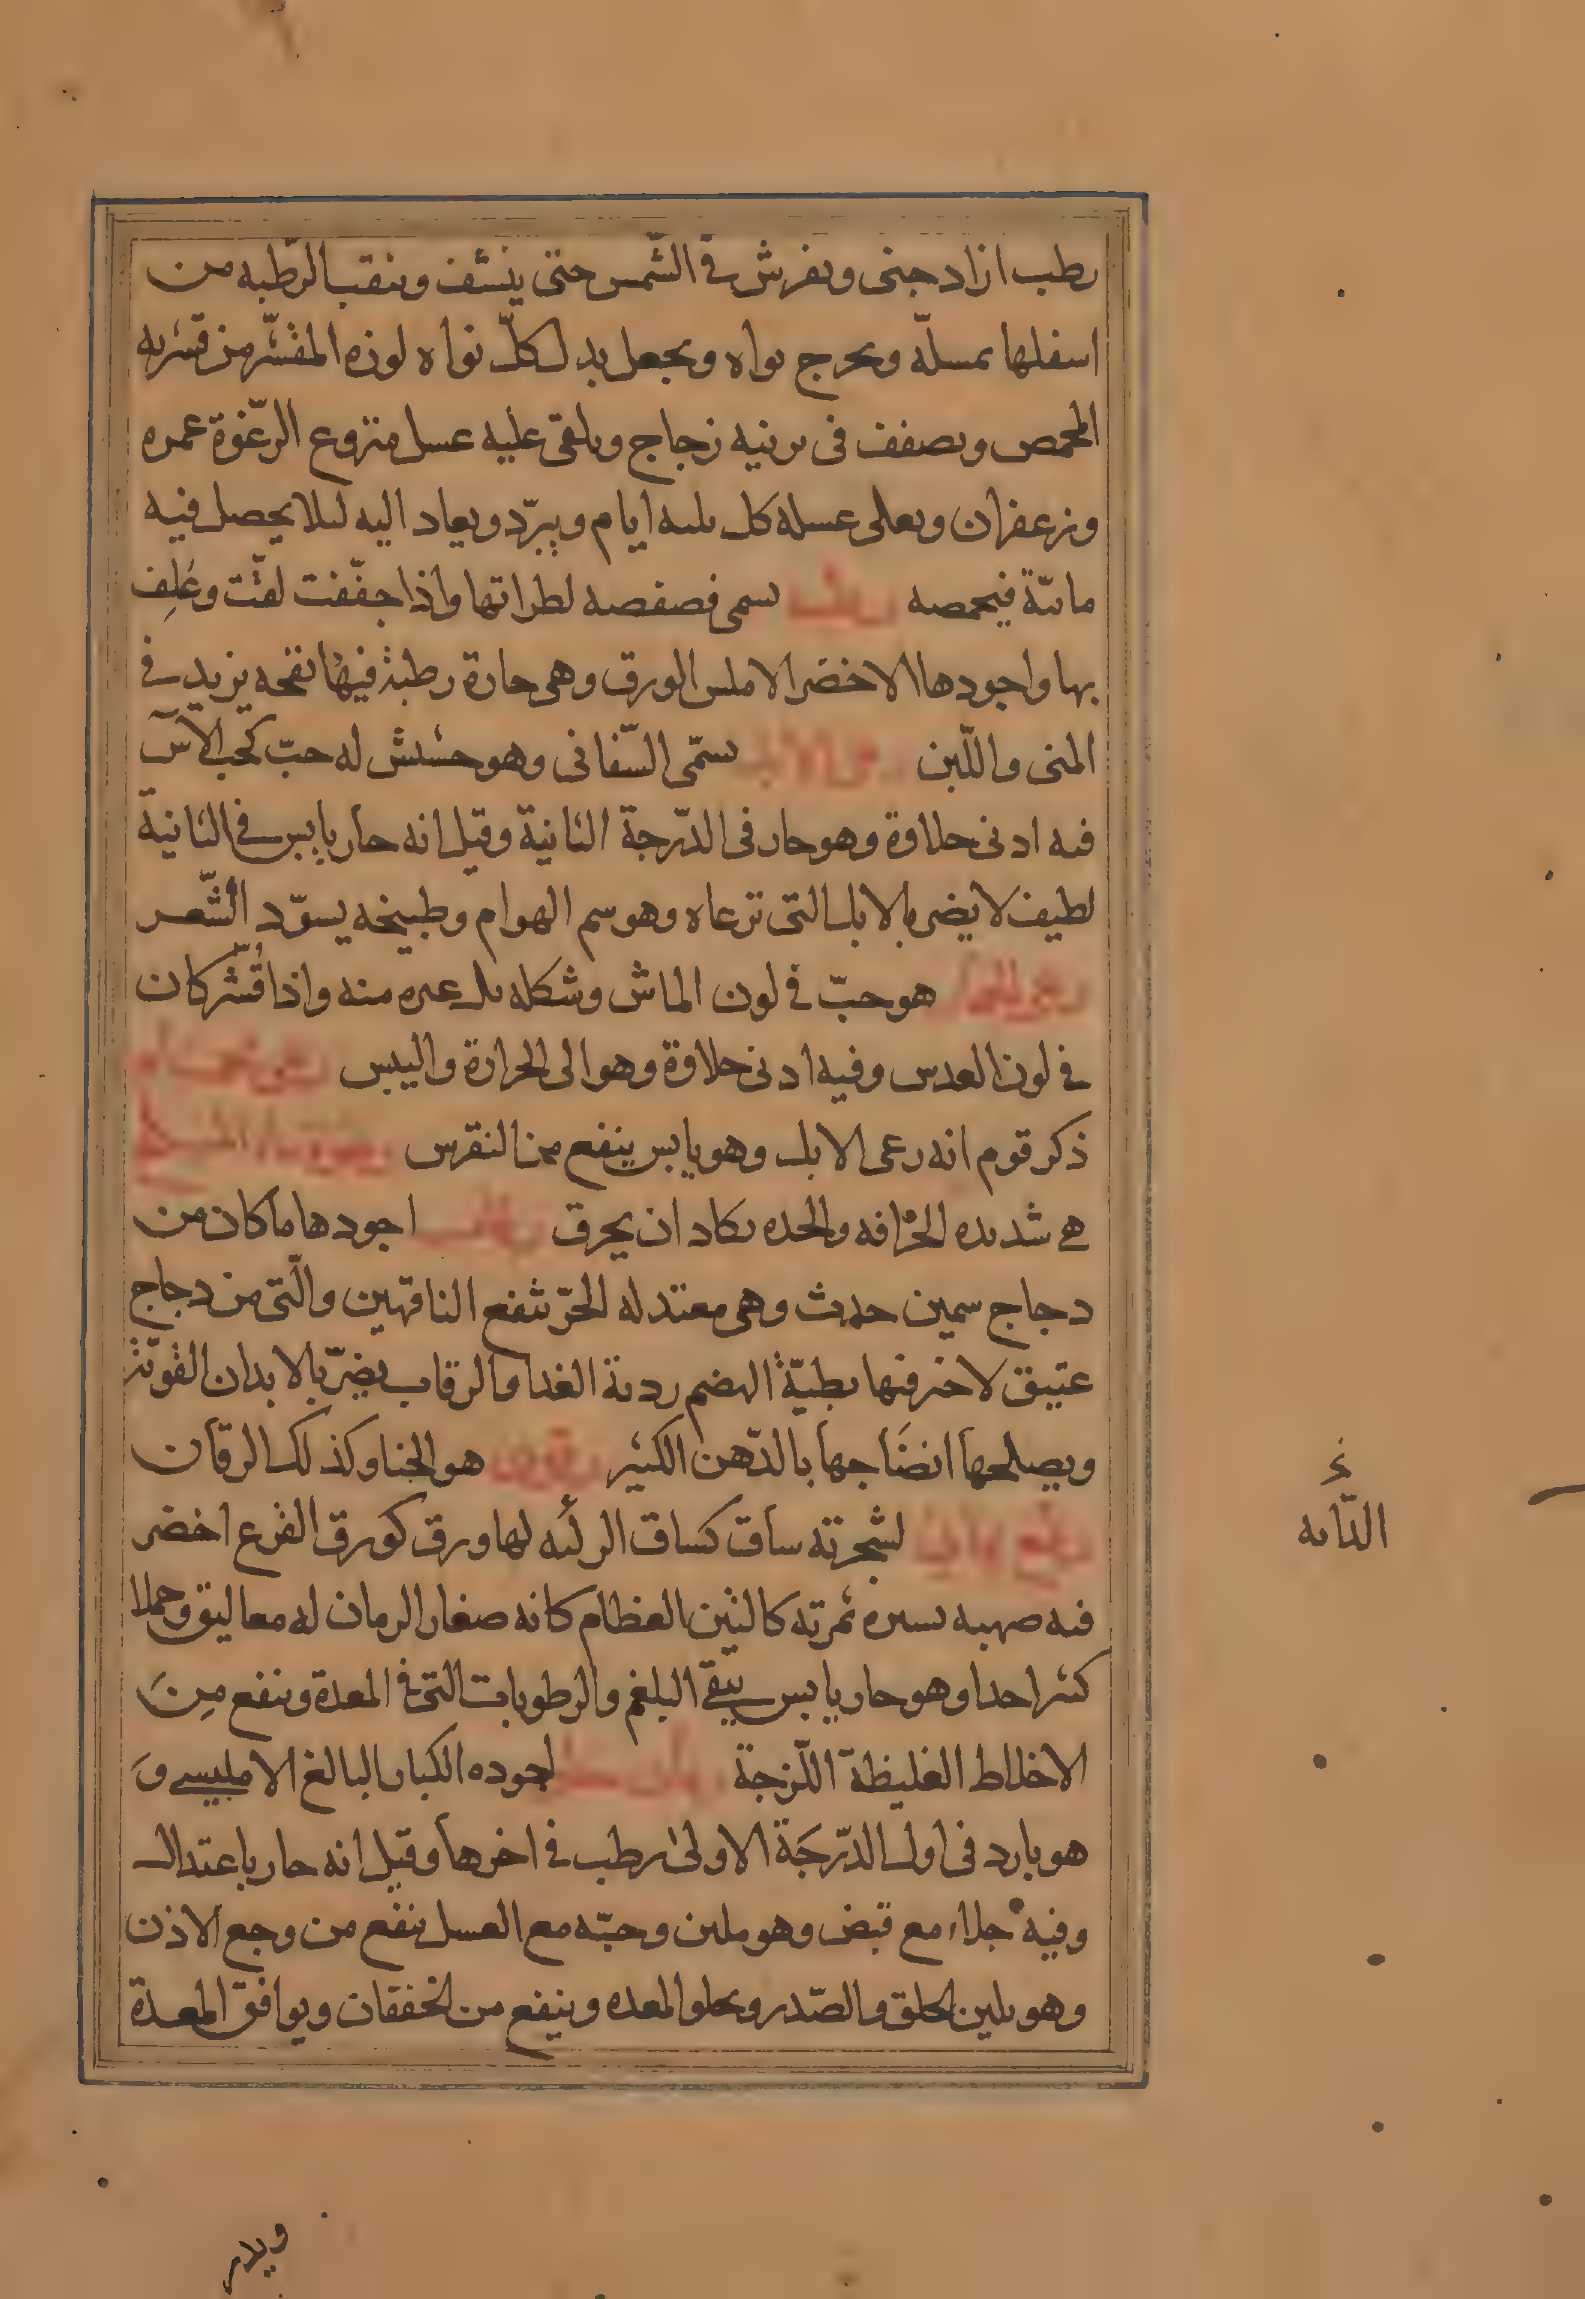 رطب ازاد جنى ويفرش فى الشّمس حتى ينشف وينقب الرّطبه من
اسفلها بمسلّه ويخرج نواه ويجعل بدل كلّ نواه لوزه المقشّر من قشريه
المحمص ويصفف فى برنيه زجاج ويلقى عليه عسل منزوع الرّغوة غمره
وزعفران ويغلى عسله كل ثلثه ايام ويبرّد ويعاد اليه لئلا يحصل فيه
مائيّة فيحمضه رطبه تسمى فصفصه لطراتها واذا جفّفت لقّت وعُلِف
بها واجودها الاخضر الاملس الورق وهى حارة رطبة فيها نفخه يزيد فى
المنى واللّبن رعى الابل يسمّى السّفانى وهو حشيش له حبّ كحب الآس
فيه ادنى حلاوة وهو حار فى الدّرجة الثانية وقيل انه حار يابس فى الثانية
لطيف لا يضر بالابل التى ترعاه وهو سم الهوام وطبيخه يسوّد الشّعر
رعى الحمام هو حبّ فى لون الماش وشكله بل غبره منه واذا قُشّر كان
فى لون العدس وفيه ادنى حلاوة وهو الى الحرارة واليبس
ذكر قوم انه رعى الابل وهو يابس ينفع من النقرس
هى شديده الحرافه والحده يكاد ان يحرق اجودها ما كان من
دجاج سمين حديث وهى معتدله الحرّ تنفع الناقهين والّتى من دجاج
عتيق لا خير فيها بطيّة الهضم ردية الغدا والرقاب يضرّ بالابدان القويّة
ويصلحها انضاجها بالدّهن الكثير رقون هو الحنا وكذلك الرقان
رقع يمانى لشجرته ساق كساق الدلبه لها ورق كورق القرع اخضر
فيه صهبه يسيره ثمرته كالتين العظام كانه صغار الرمان له معاليق وحملا
كثيرا جدا وهو حار يابس ينقى البلغم والرطوبات التى فى المعدة وينفع مِنَ
الاخلاط الغليظة اللّزجة رمان حلو اجوده الكبار البالغ الامليسى وَ
هو بارد فى اول الدّرجَة الاولى رطب فى اخرها وقيل انه حار باعتدال
وفيه جلاء مع قبض وهو ملين وحبّه مع العسل ينفع من وجع الاذن
وهو يلين الحلق والصّدر ويجلو المعده وينفع من الخفقان ويوافق المعدة